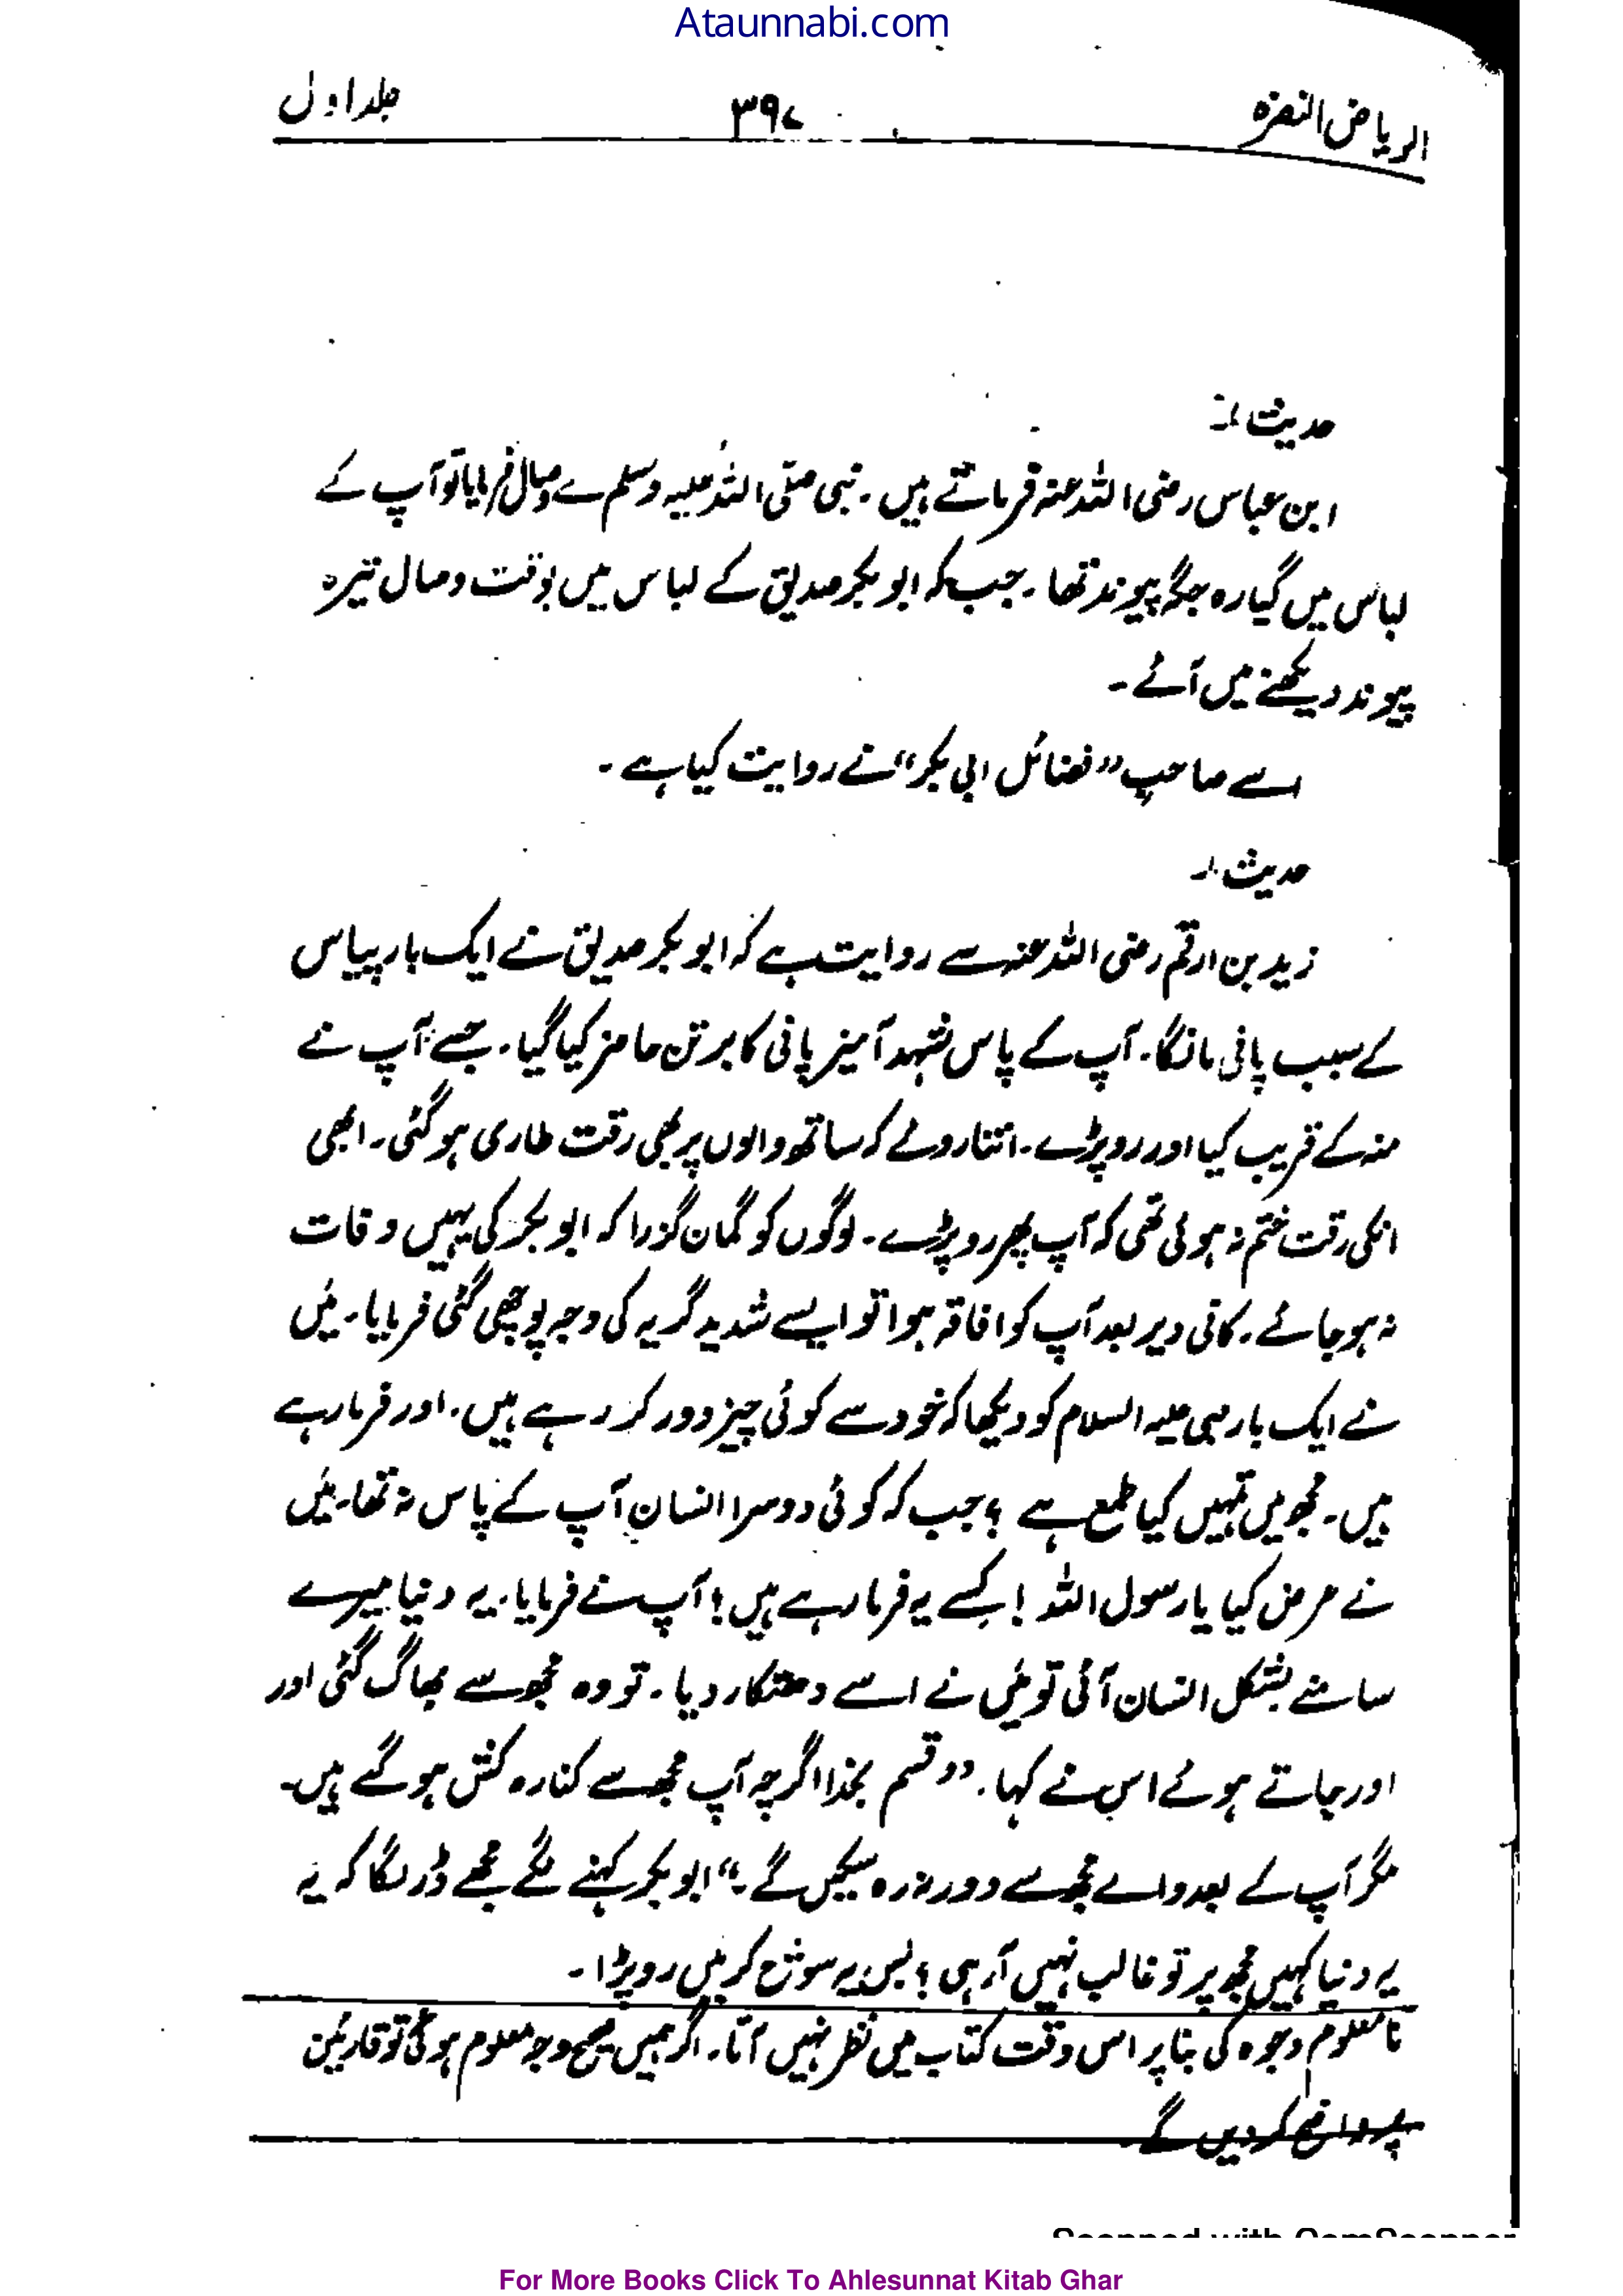 Ataunnabi.com
الریاض النضرہ ۳۹۷ جلد اول
حدیث :-
ابن عباس رضی اللہ عنہ فرماتے ہیں۔ نبی صلی اللہ علیہ وسلم سے وصال فرمایا تو آپ کے
لباس میں گیارہ جگہ پیوند تھا۔ جب کہ ابو بکر صدیق کے لباس میں بوقت وصال تیرہ
پیوند دیکھنے میں آئے۔
اسے صاحبِ "فضائل ابی بکر" نے روایت کیا ہے۔
حدیث :-
زید بن ارقم رضی اللہ عنہ سے روایت ہے کہ ابو بکر صدیق نے ایک بار پیاس
کے سبب پانی مانگا۔ آپ کے پاس شہد آمیز پانی کا برتن حاضر کیا گیا۔ جسے آپ نے
منہ کے قریب کیا اور رو پڑے۔ اتنا روئے کہ ساتھ والوں پر بھی رقت طاری ہو گئی۔ ابھی
انکی رقت ختم نہ ہوئی تھی کہ آپ پھر رو پڑے۔ لوگوں کو گمان گزرا کہ ابو بکر کی یہیں وفات
نہ ہو جائے۔ کافی دیر بعد آپ کو افاقہ ہوا تو ایسے شدید گریہ کی وجہ پوچھی گئی فرمایا۔ میں
نے ایک بار نبی علیہ السلام کو دیکھا کہ خود سے کوئی چیز دور کر رہے ہیں۔ اور فرما رہے
ہیں۔ مجھ میں تمہیں کیا طمع ہے ؟ جب کہ کوئی دوسرا انسان آپ کے پاس نہ تھا۔ میں
نے عرض کیا یا رسول اللہ ! کسے یہ فرما رہے ہیں ؟ آپ نے فرمایا۔ یہ دنیا میرے
سامنے بشکل انسان آئی تو میں نے اسے دھتکار دیا۔ تو وہ مجھ سے بھاگ گئی اور
اور جاتے ہوئے اس نے کہا۔ "قسم بخدا اگرچہ آپ مجھ سے کنارہ کش ہو گئے ہیں۔
مگر آپ کے بعد والے مجھ سے دور نہ رہ سکیں گے۔" ابو بکر کہنے لگے مجھے ڈر لگا کہ یہ
یہ دنیا کہیں مجھ پر تو غالب نہیں آ رہی ؟ بس یہ سوچ کر میں رو پڑا۔
نامعلوم وجوہ کی بنا پر اس وقت کتاب میں نظر نہیں آتا۔ اگر ہمیں صحیح وجہ معلوم ہو گئی تو قارئین
پر واضح کر دیں گے
Scanned with CamScanner
For More Books Click To Ahlesunnat Kitab Ghar